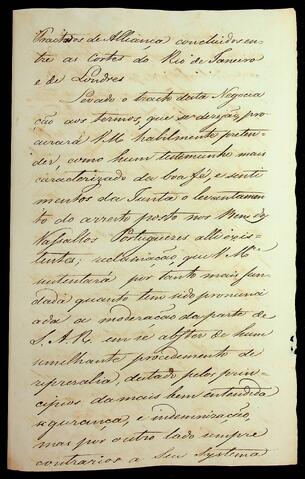 Tractados de Alliança concluidos en-
tre as Cortes do Rio de Janeiro
e de Londres
Levado o tracto desta Negocia
ção aos termos, que se desejão, pro
curará V.M.^e habilmente preten-
der, como hum testemunho mais
caracterizado da boa fé, e senti
mentos da Junta o levantamen-
to do arresto posto nos Bens dos
Vassallos Portuguezes alli exis-
tentes; reclamação, que V.M.^e
sustentará por tanto mais fun
dada quanto tem sido pronunci
ada a moderação da parte de
S. A. R. em se abster de hum
semelhante procedimento de
represalia, dictado pelos prin-
cipios da mais bem entendida
segurança, e indemnização,
mas por outro lado sempre
contrarios a Seu Systema